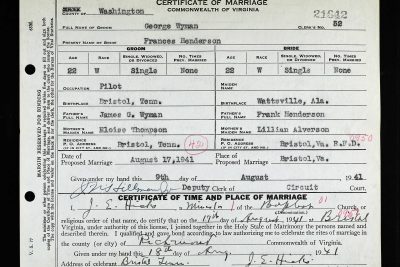 CERTIFICATE OF MARRIAGE
COMMONWEALTH OF VIRGINIA
21642
COUNTY OF Washington
CLERK'S NO. 52
FULL NAME OF GROOM George Wyman
PRESENT NAME OF BRIDE Frances Henderson
GROOM BRIDE
AGE RACE SINGLE, WIDOWED, OR DIVORCED NO. TIMES PREV. MARRIED AGE RACE SINGLE, WIDOWED, OR DIVORCED NO. TIMES PREV. MARRIED
22 W Single None 22 W Single None
OCCUPATION Pilot MAIDEN NAME
BIRTHPLACE Bristol, Tenn. BIRTHPLACE Wattsville, Ala.
FATHER'S FULL NAME James G. Wyman FATHER'S FULL NAME Frank Henderson
MOTHER'S MAIDEN NAME Eloise Thompson MOTHER'S MAIDEN NAME Lillian Alverson
RESIDENCE P. O. ADDRESS Bristol, Tenn. RESIDENCE P. O. ADDRESS Bristol,Va. R.F.D.
Date of Proposed Marriage August 17,1941 Place of Proposed Marriage Bristol,Va.
Given under my hand this 9th day of August 1941
Deputy Clerk of Circuit Court.
CERTIFICATE OF TIME AND PLACE OF MARRIAGE
I, J. E. Hicks a Minister of the Baptist Church,
or religious order of that name, do certify that on the 17th day of August 1941 at Bristol
Virginia, under authority of this license, I joined together in the Holy State of Matrimony the persons named and
described therein. I qualified and gave bond according to law authorizing me to celebrate the rites of marriage in
the county (or city) of Commonwealth of Virginia.
Given under my hand this 18th day of Aug 1941
Address of celebrant Bristol Tenn J. E. Hicks
MARGIN RESERVED FOR BINDING